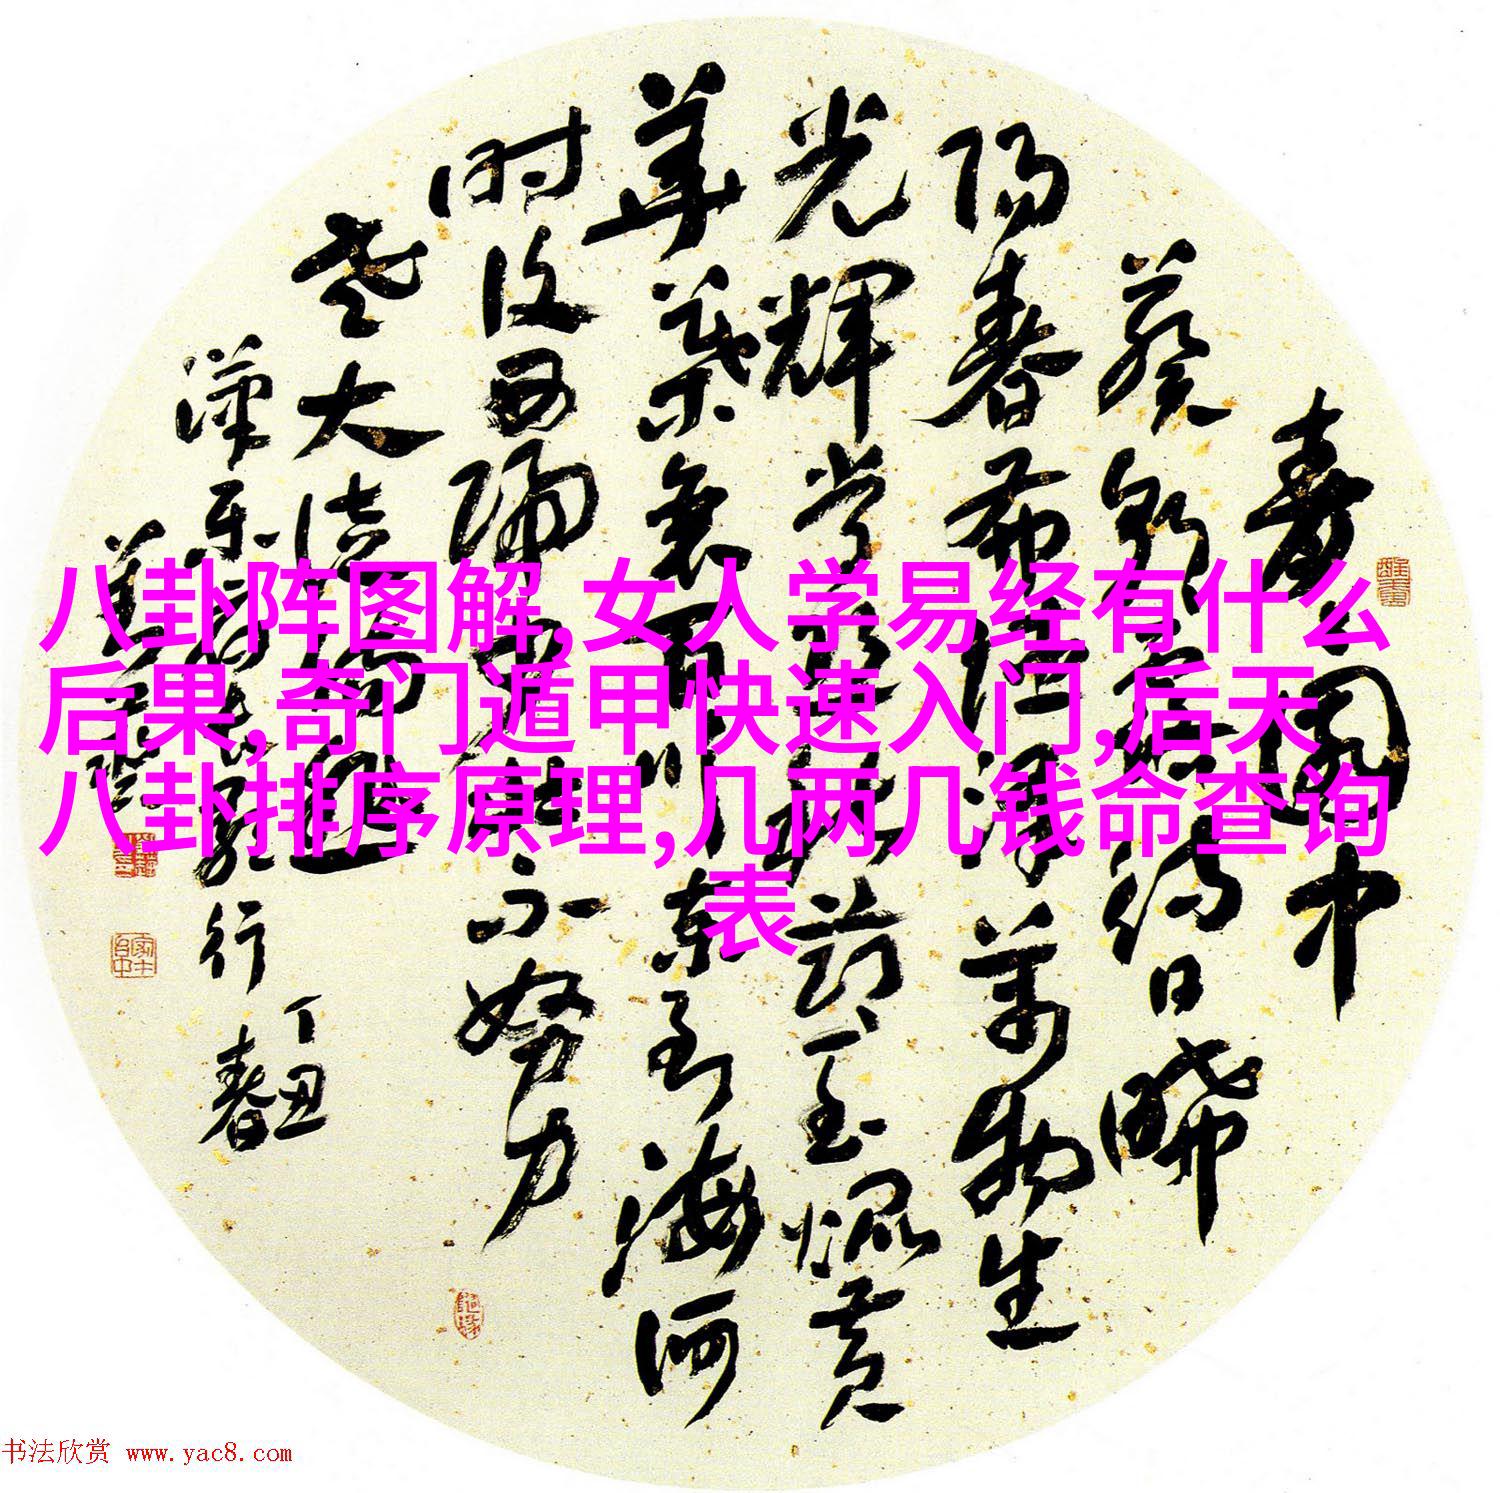 青青園中
葵朝露待日晞
陽春布德澤萬物生
光輝常恐秋節至焜黃
華葉衰百川東到海河
时復西歸少壯不努力
老大徒傷悲
漢樂府長歌行
丁丑
春
八卦阵图解,女人学易经有什么
后果,奇门遁甲快速入门,后天
八卦排序原理,几两几钱命查询
表
书法欣赏 www.yac8.com